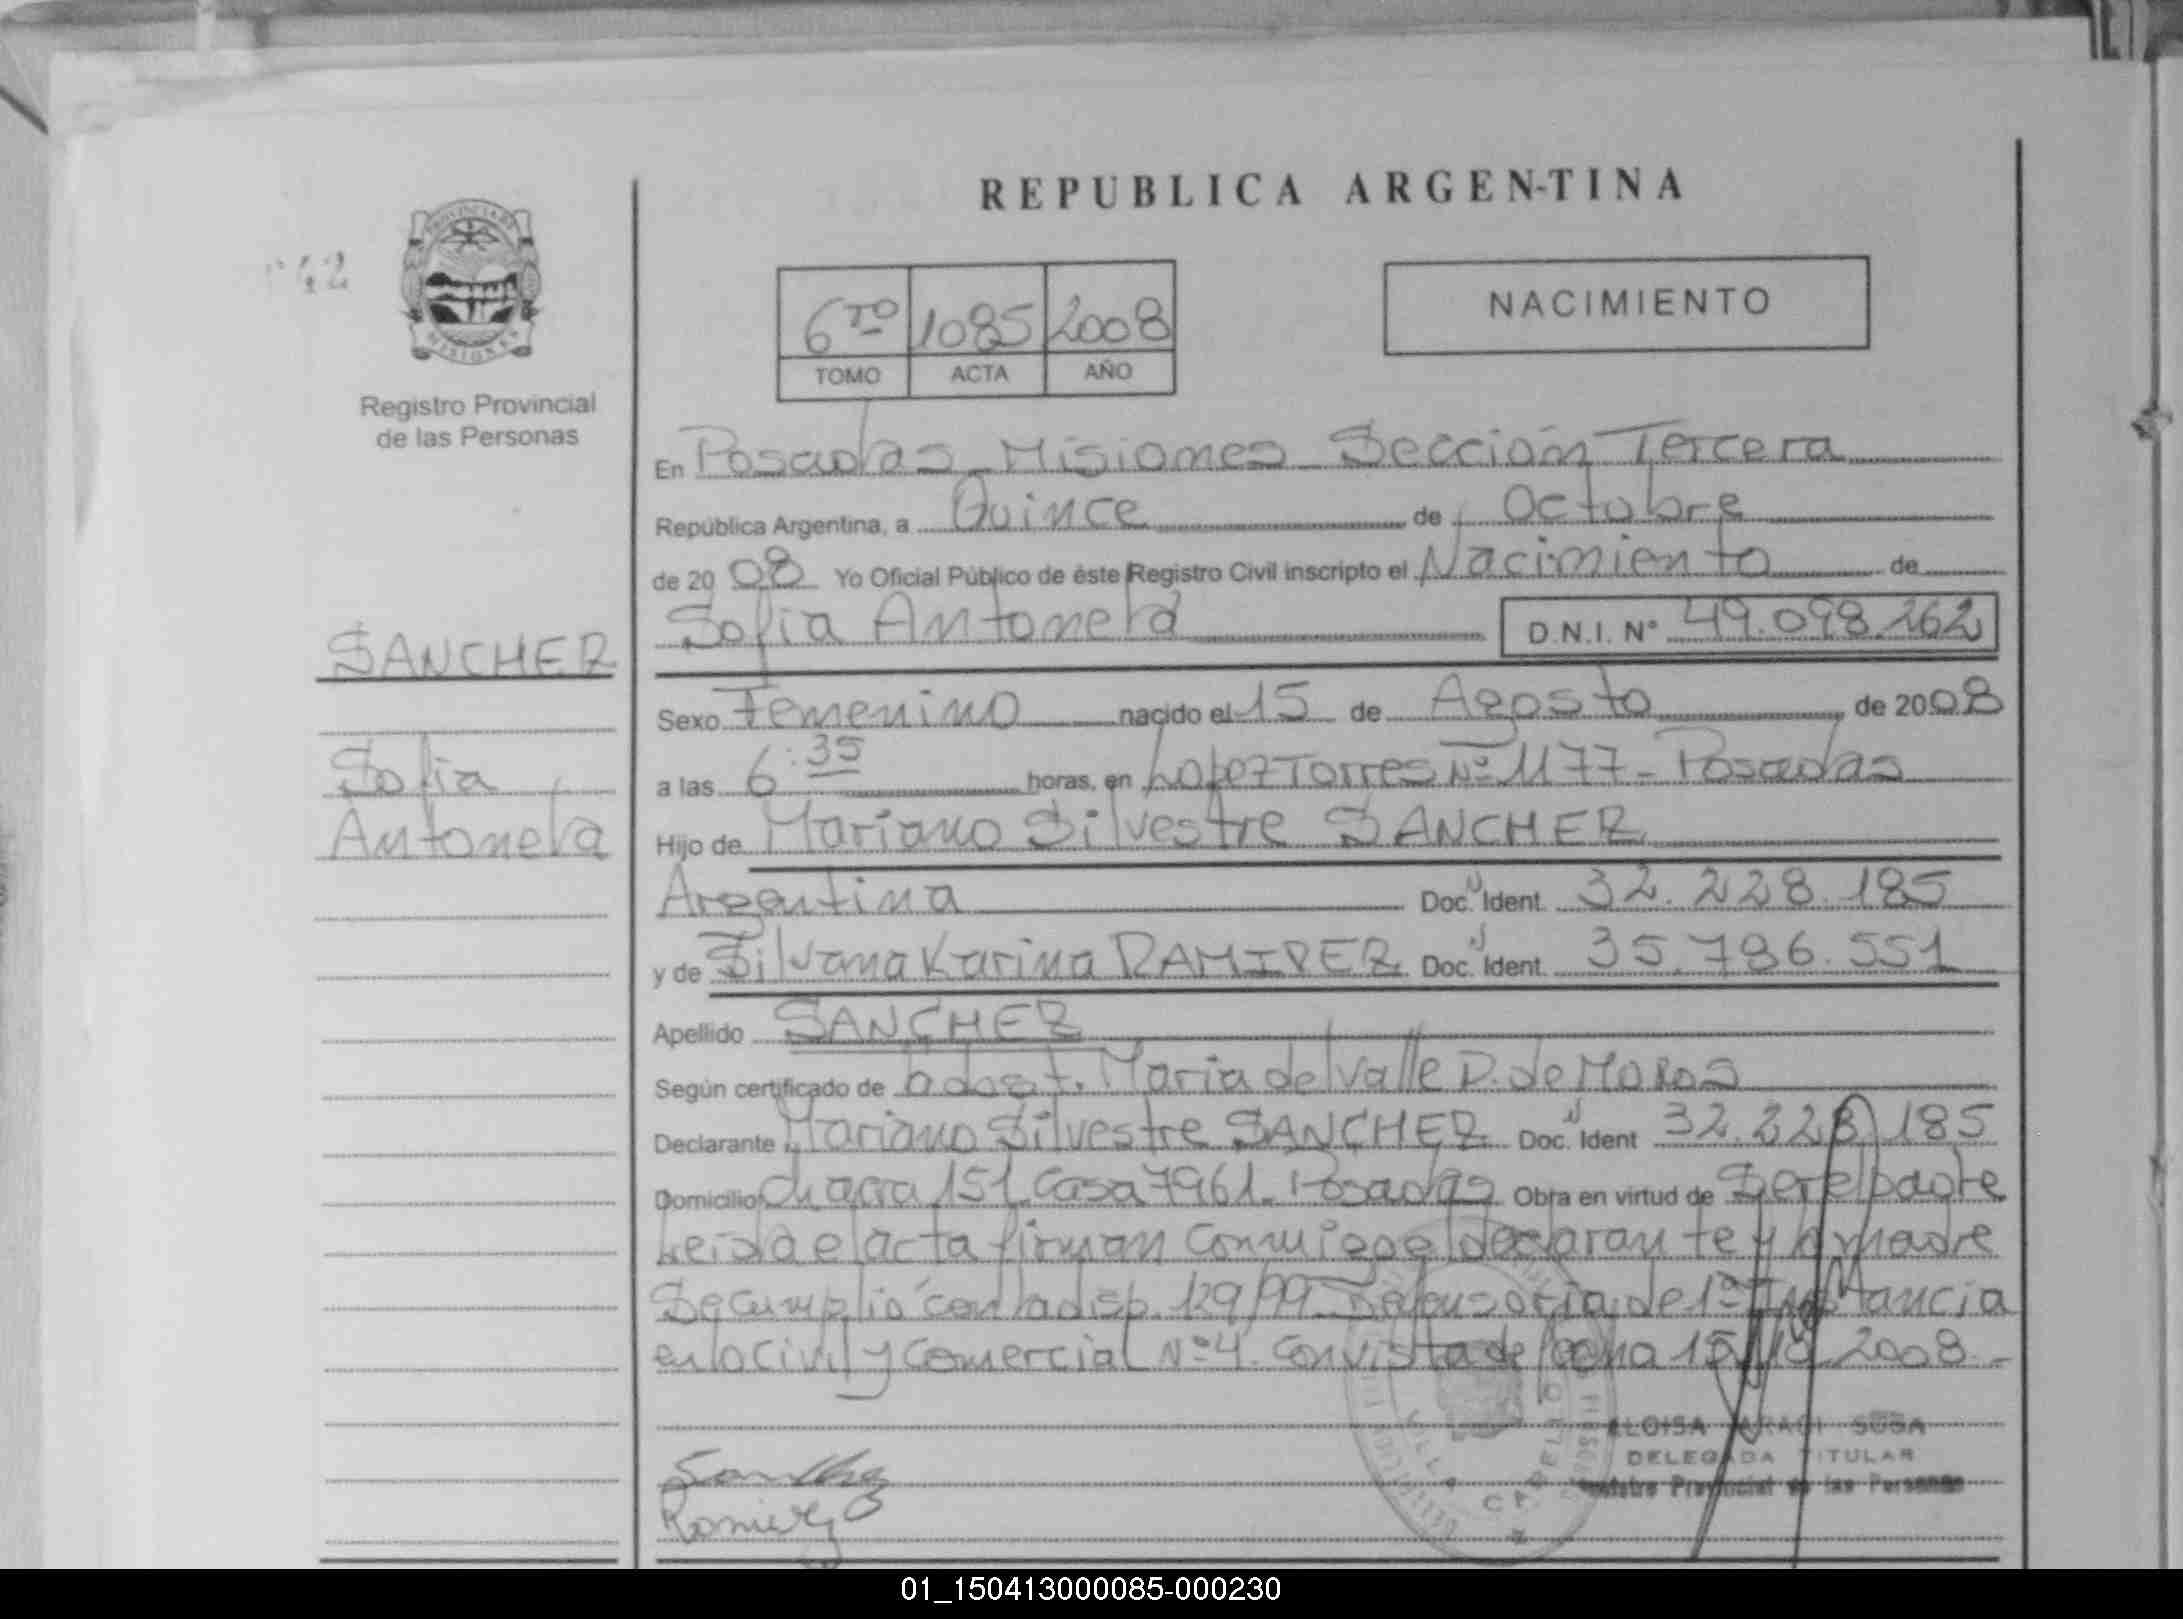 REPUBLICA ARGENTINA
PROVINCIA DE
MISIONES
Registro Provincial
de las Personas
6TO 1085 2008
TOMO ACTA AÑO
NACIMIENTO
En Posadas Misiones Sección Tercera
República Argentina, a Quince de Octubre
de 2008 Yo Oficial Público de éste Registro Civil inscripto el Nacimiento de
Sofia Antonela D.N.I. Nº 49.098.262
SANCHEZ
Sofia
Antonela
Sexo Femenino nacido el 15 de Agosto de 2008
a las 6:35 horas, en Lopez Torres Nº 1177 - Posadas
Hijo de Mariano Silvestre SANCHEZ
Argentina Doc. Ident. 32.228.185
y de Silvana Karina RAMIREZ Doc. Ident. 35.786.551
Apellido SANCHEZ
Según certificado de Obst. Maria del Valle D. de Moros
Declarante Mariano Silvestre SANCHEZ Doc. Ident 32.228.185
Domicilio Chacra 151 Casa 7961 Posadas Obra en virtud de Ser el padre
Leida el acta firman conmigo el declarante y la madre
Se cumplió con la disp. 129/99 Defensoria de 1º Instancia
en lo Civil y Comercial Nº 4. con vista de fecha 15/10/2008.-
Sanchez
Ramirez
DELEGADA TITULAR
Registro Provincial de las Personas
01_150413000085-000230